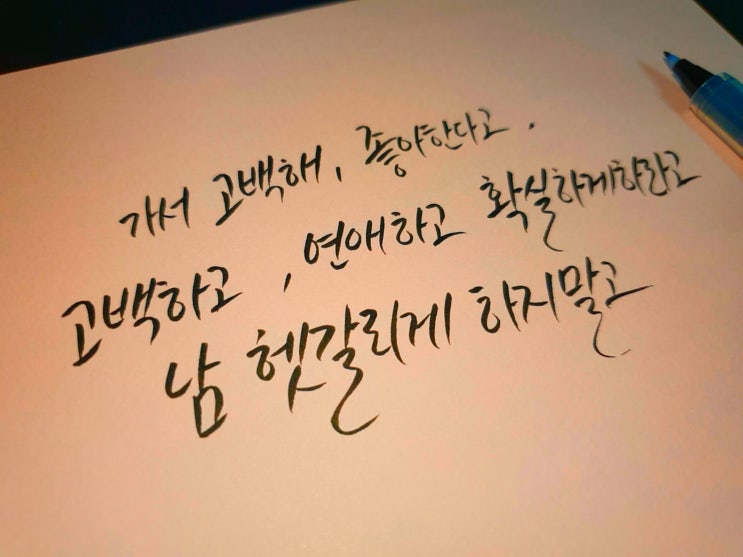 가서 고백해, 좋아한다고.
고백하고, 연애하고 확실하게하란고
남 헷갈리게 하지말고